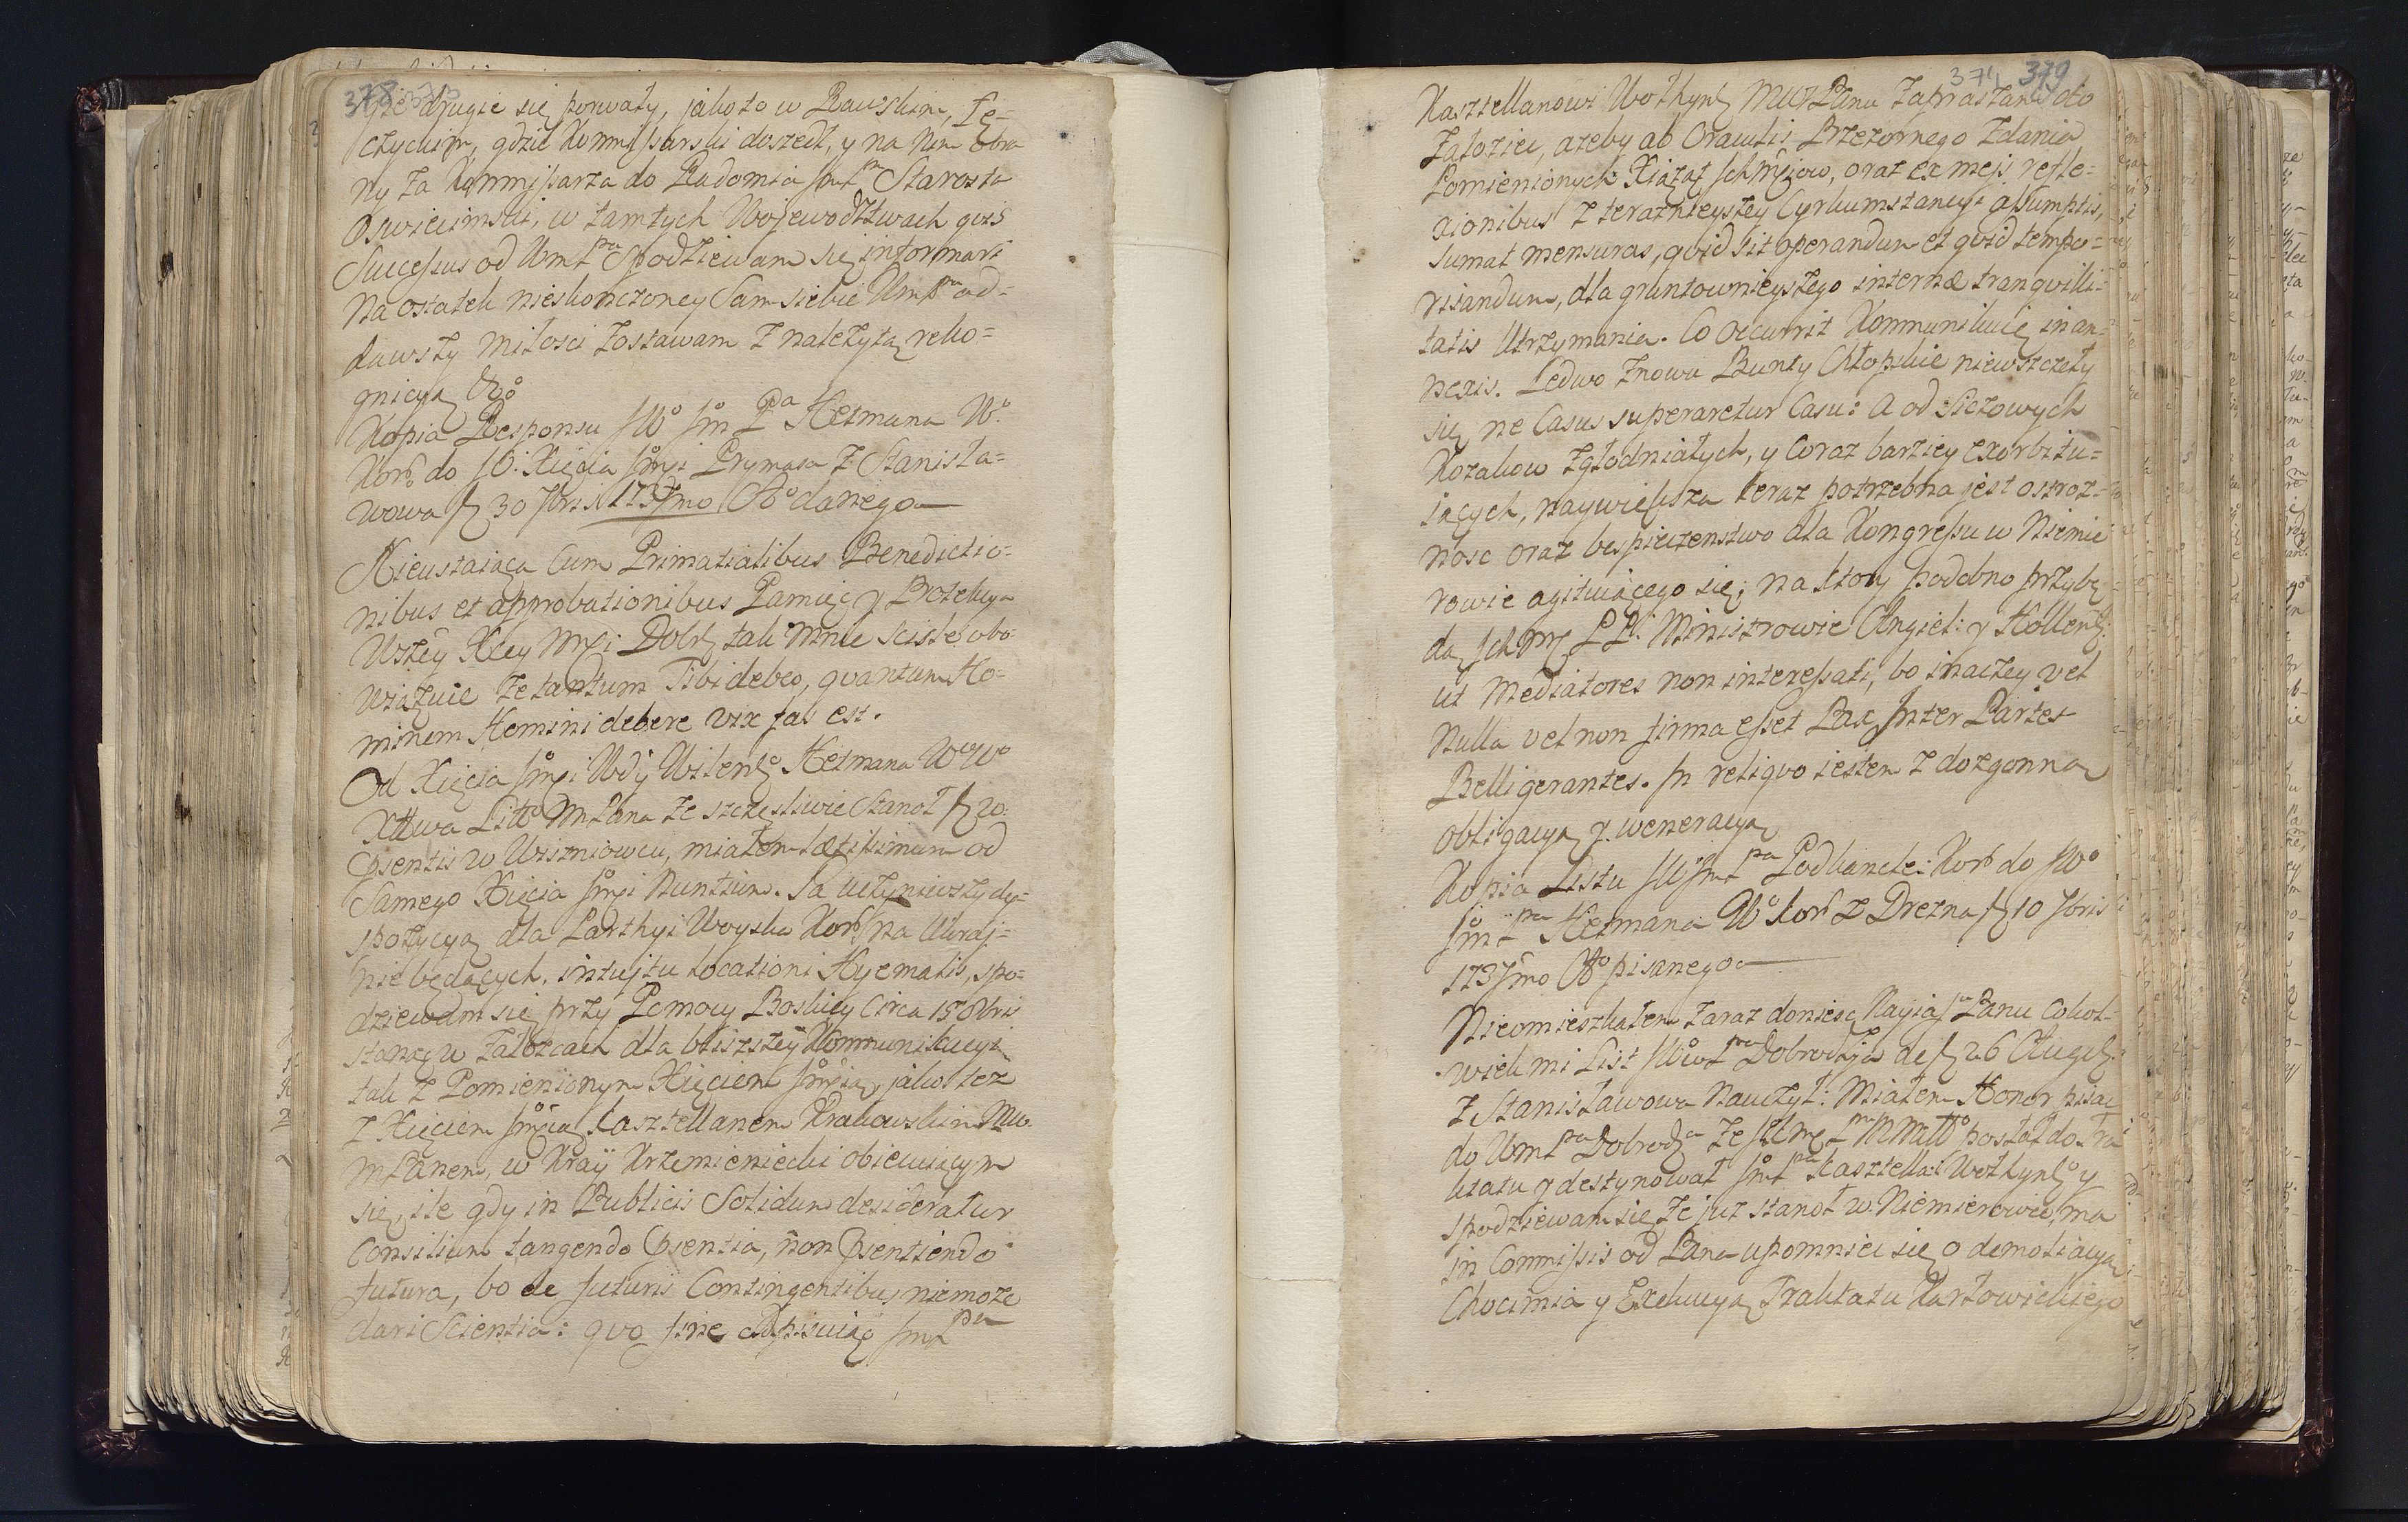 378
drugie się porwały, jako to w Rawskim, Łę-
czyckim, gdzie Kommissarski doszedł, y na Nim obra
ny za Kommissarza do Radomia Starosta
Oswiecimski, w tamtych Wojewodztwach qvis
Successus od Spodziewam się informari
Na ostatek nieskonczoney Sam siebie od-
dawszy miłosci zostawam z nalezytą reko-
gnicyą &c
Kopia Responsu JWo Jm Pa Hetmana Wo
Koro do JO: Xięcia Jmsi Prymasa z Stanisła-
wowa 30 7bris 1737mo Ao danego
Nieustaiąca Cum Primatialibus Benedictio-
nibus et approbationibus Pamięc y Protekcya
Wszey Xcey Msci Dobrz tak mnie sciśle obo-
wiązuie ze tantum Tibi debeo, qvantum Ho-
minem Homini debere vix fas est.
Od Xięcia Jmsi Wdy Wilens Hetmana WoWo
Xttwa Litto MPana ze szczęsliwie Stanoł 20
Psentis w Wiszniowcu, miałem lætissimum od
Samego Xięcia Jmsi Nuntium. Ja uczyniwszy dys-
pozycyą dla Parthyi Woyska Koro na Ukraj-
nie będących, intuitu locationi Hyemalis, spo-
dziewam się przy Pomocy Boskiey Circa 15 8bris
stanąc w Załozcach dla bliszszey Kommunikacyi
tak z Pomienionym Xięciem Jmścią, jako tez
z Xięciem Jmścią Kasztellanem Krakowskim Mw.
MPanem, w Kray Krzemieniecki obiecuiącym
się, ile gdy in Publicis Solidum desideratur
Consilium tangendo Psentia, non Psentiendo
futura, bo de futuris Contingentibus niemoze
dari Scientia: qvo fine Jmp pa
374 379
Kasztellanowi Wołhyns MWPanu zapraszam do
Załoziec, azeby ab Oraculis Przezornego Zdania
Pomienionych Xiążąt Ichmsciow, oraz ex meis refle-
xionibus z teraznieyszey Cyrkumstancyi assumptis,
Sumat mensuras, qvid sit operandum et qvid tempo-
risandum, dla gruntownieyszego internæ tranqvilli-
tatis Utrzymania. Co occurrit Kommunikuię in an-
nexis. Ledwo znowu Bunty Chłopskie niewszczęły
się, ne Casus superaretur Casu: a od Siczowych
Kozakow zgłodniałych, y coraz barziey exorbitu-
iących, naywiększa teraz potrzebna jest ostroz-
nosc oraz bespieczenstwo dla Kongressu w Niemie
rowie agituiącego się; na ktory podobno przybę-
dą Ich Mć PP. Ministrowie Angiel: y Hollens:
ut Mediatores non interessati, bo inaczey vel
Nulla vel non firma esset Pax Inter Partes
Belligerantes. In reliqvo iestem z dozgonną
obligacyą y weneracyą
Kopia Listu JWJmP pa Podkancle: Koro do JWo
Jm P pa Hetmana Wo Koro z Drezna 10 7bris
1737mo Ao pisanego
Nieomieszkałem zaraz doniesc Nayias Panu cokol-
wiek mi List Dobrodzja de 26 Aug
z Stanisławowa Nauczył: Miałem Honor pisac
do WmP pa Dobrodza ze posłał do Tra
ktatu y destynował JmP pa Kasztella: Wołhyns y
spodziewam się ze juz stanoł w Niemierowie, ma
in Commissis od Pana upomniec się o demolicyą
Chocimia y Exekucyą Traktatu Karłowickiego